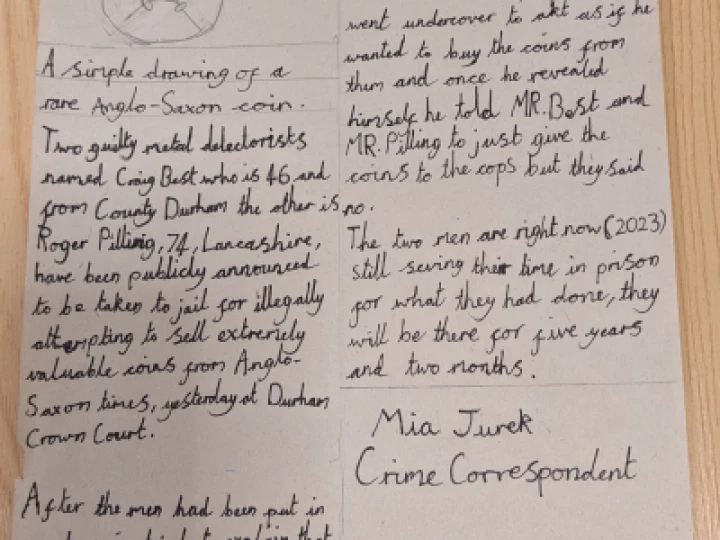 A simple drawing of a
rare Anglo-Saxon coin.
Two guilty metal detectorists
named Craig Best who is 46 and
from County Durham the other is
Roger Pilling, 74, Lancashire,
have been publicly announced
to be taken to jail for illegally
attempting to sell extremely
valuable coins from Anglo-
Saxon times, yesterday at Durham
Crown Court.
After the men had been put in
explain that
went undercover to akt as if he
wanted to buy the coins from
them and once he revealed
himself he told MR.Best and
MR.Pilling to just give the
coins to the cops but they said
no.
The two men are right now (2023)
still seving their time in prison
for what they had done, they
will be there for five years
and two months.
Mia Jurek
Crime Correspondent